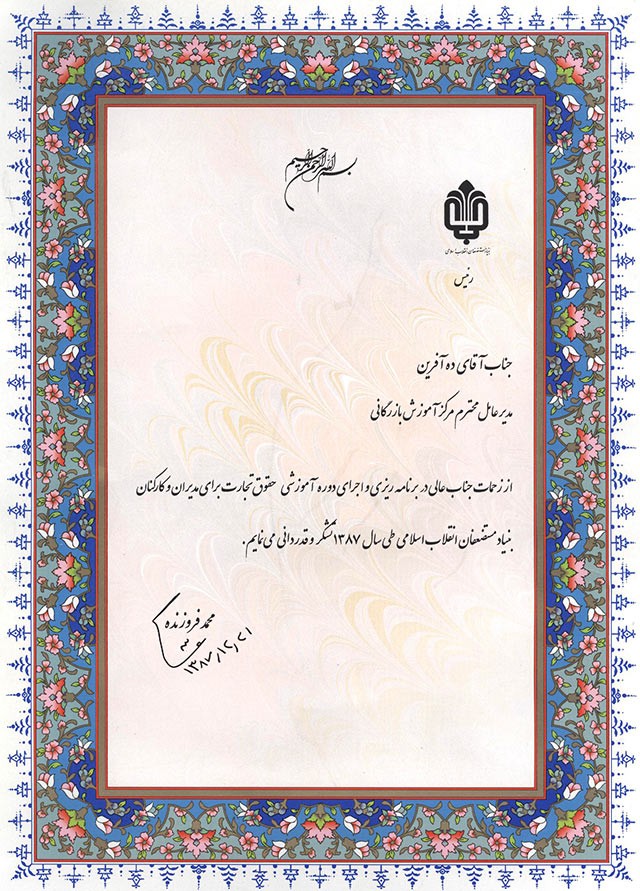 بسم الله الرحمن الرحیم
بنیاد مستضعفان انقلاب اسلامی
رئیس
جناب آقای ده آفرین
مدیرعامل محترم مرکز آموزش بازرگانی
از زحمات جناب عالی در برنامه ریزی و اجرای دوره آموزشی حقوق تجارت برای مدیران و کارکنان
بنیاد مستضعفان انقلاب اسلامی طی سال ۱۳۸۷ تشکر و قدردانی می نمایم.
محمد فروزنده
۱۳۸۷/۱۲/۲۱